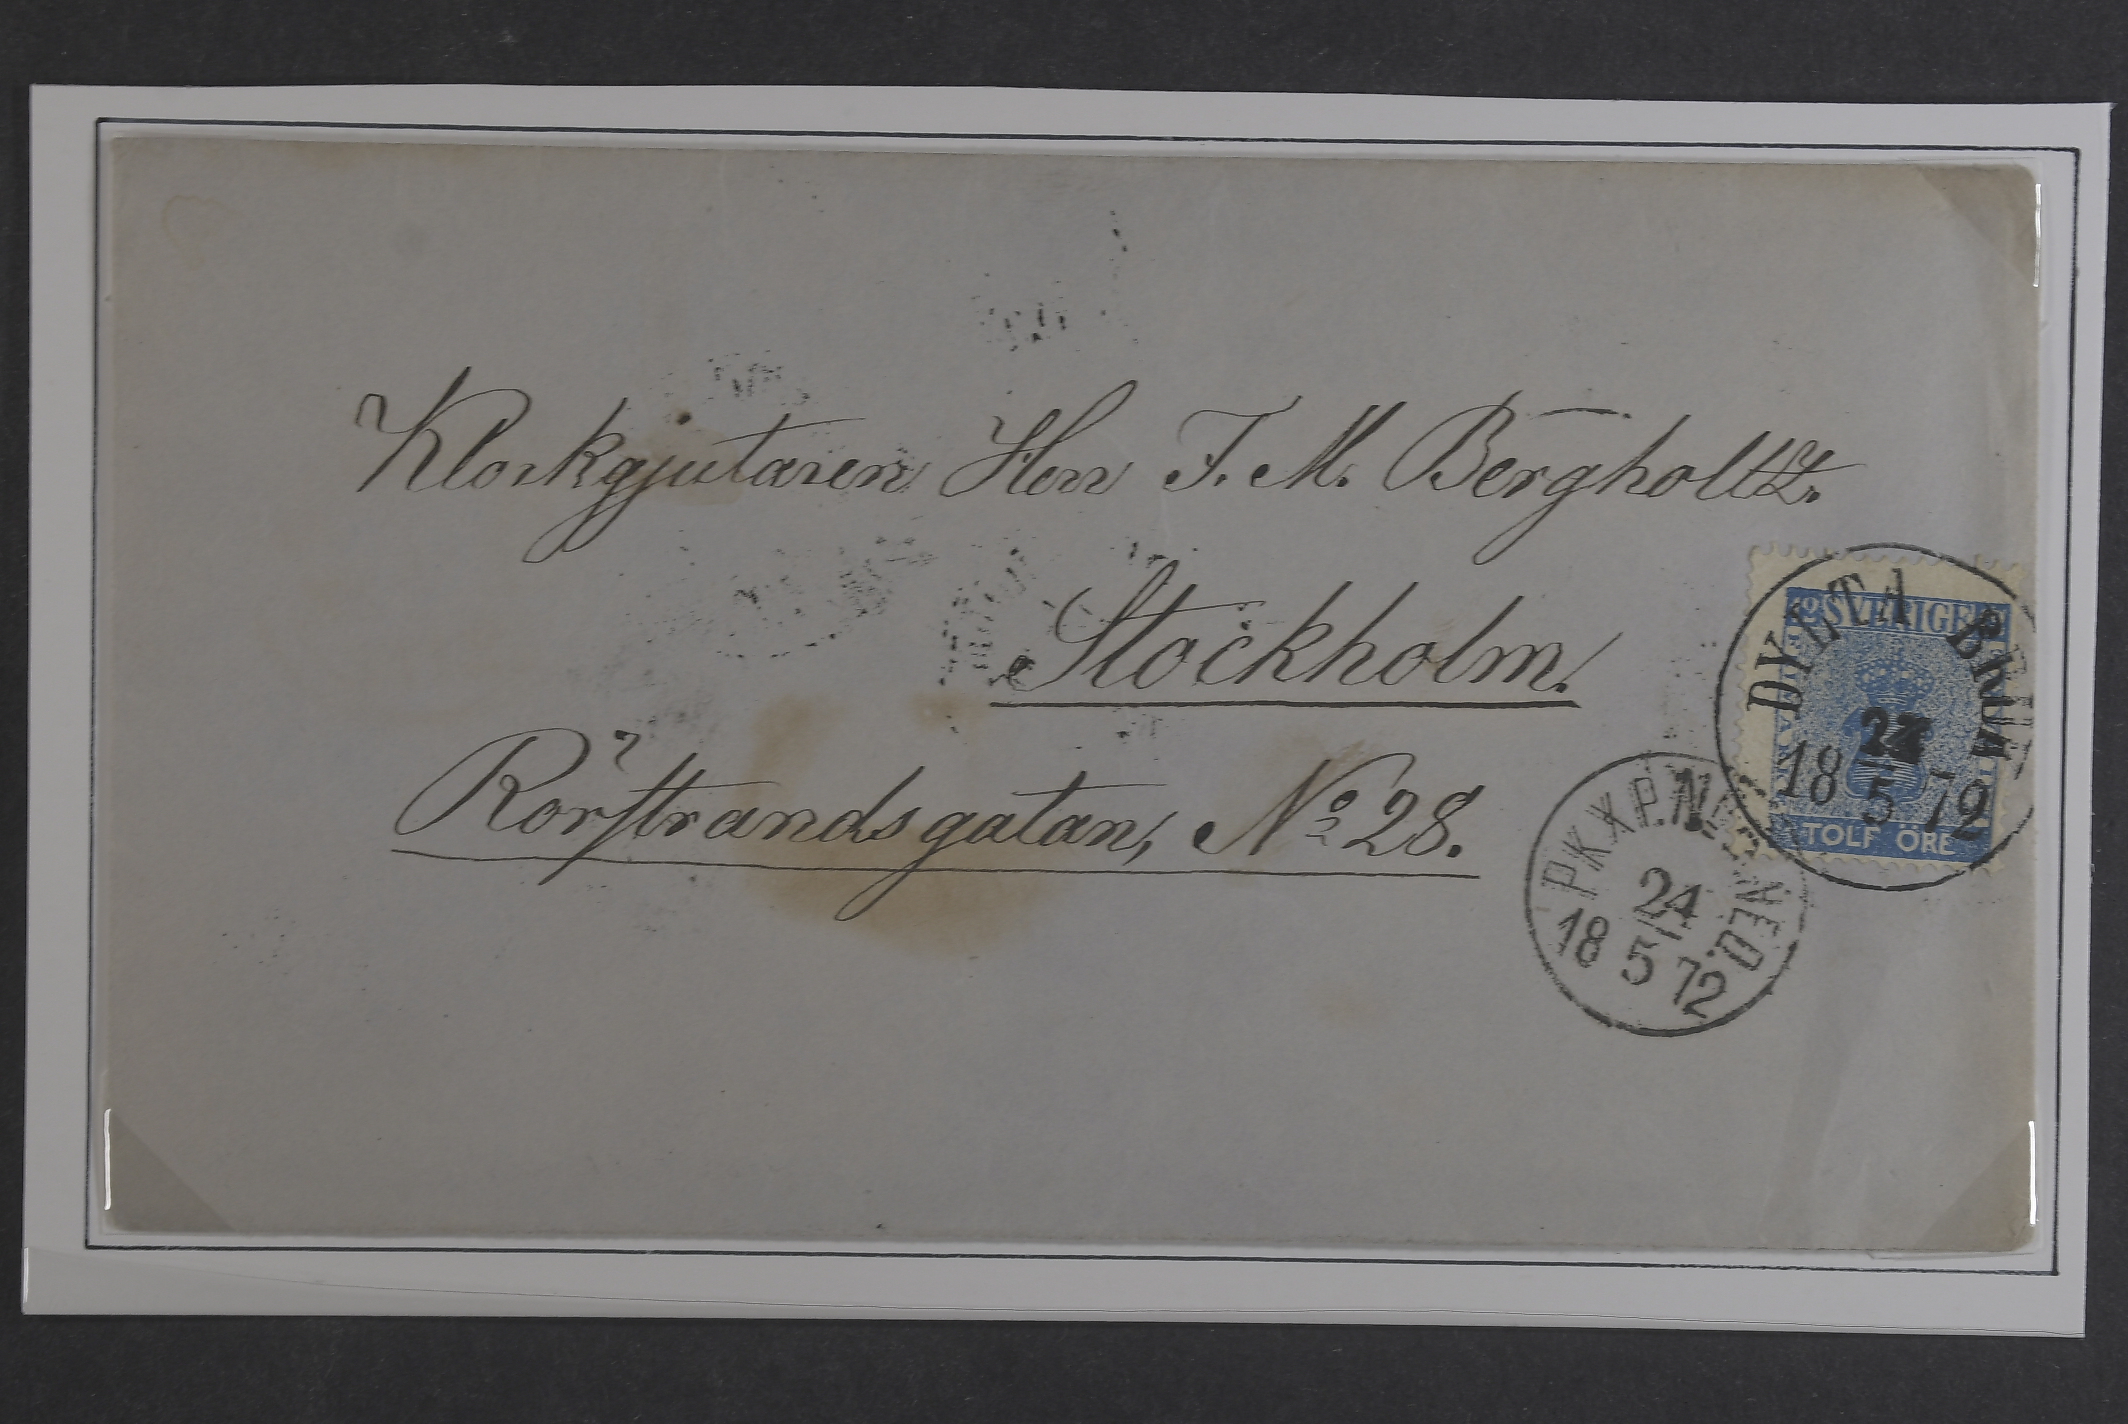 Klockgjutaren Herr J. M. Bergholtz.
Stockholm.
Rörstrandsgatan, No 28.
12 SVERIGE
TOLF ÖRE
DYLTA BRUK
18 5 72
PKXP.N UPP.NED.
24
18 5 72